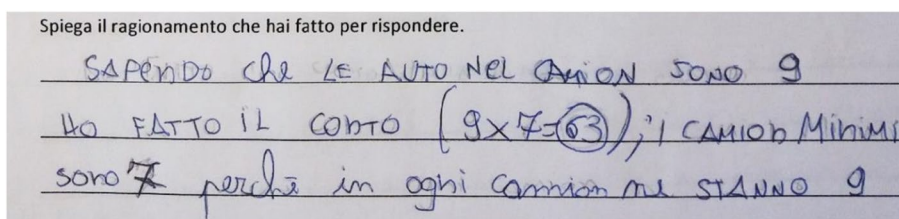 Spiega il ragionamento che hai fatto per rispondere.
SAPENDO che LE AUTO NEL CAMION SONO 9
HO FATTO IL CONTO (9x7=63), i CAMION MiniMi
sono 7 perchè in ogni camion ne STANNO 9